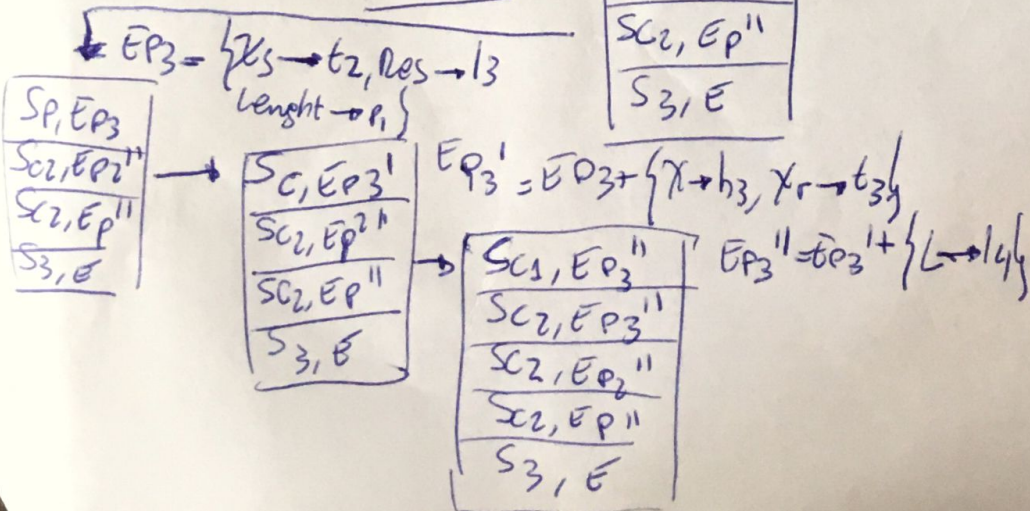 Sc2, Ep''
S3, E
Ep3 = {Xs → t2, Res → l3
Lenght → p1}
Sp, Ep3
Sc2, Ep2''
Sc2, Ep''
S3, E
Sc, Ep3'
Sc2, Ep2''
Sc2, Ep''
S3, E
Ep3' = Ep3 + {X → h3, Xr → t3}
Sc1, Ep3''
Sc2, Ep3''
Sc2, Ep2''
Sc2, Ep''
S3, E
Ep3'' = Ep3' + {L → l4}